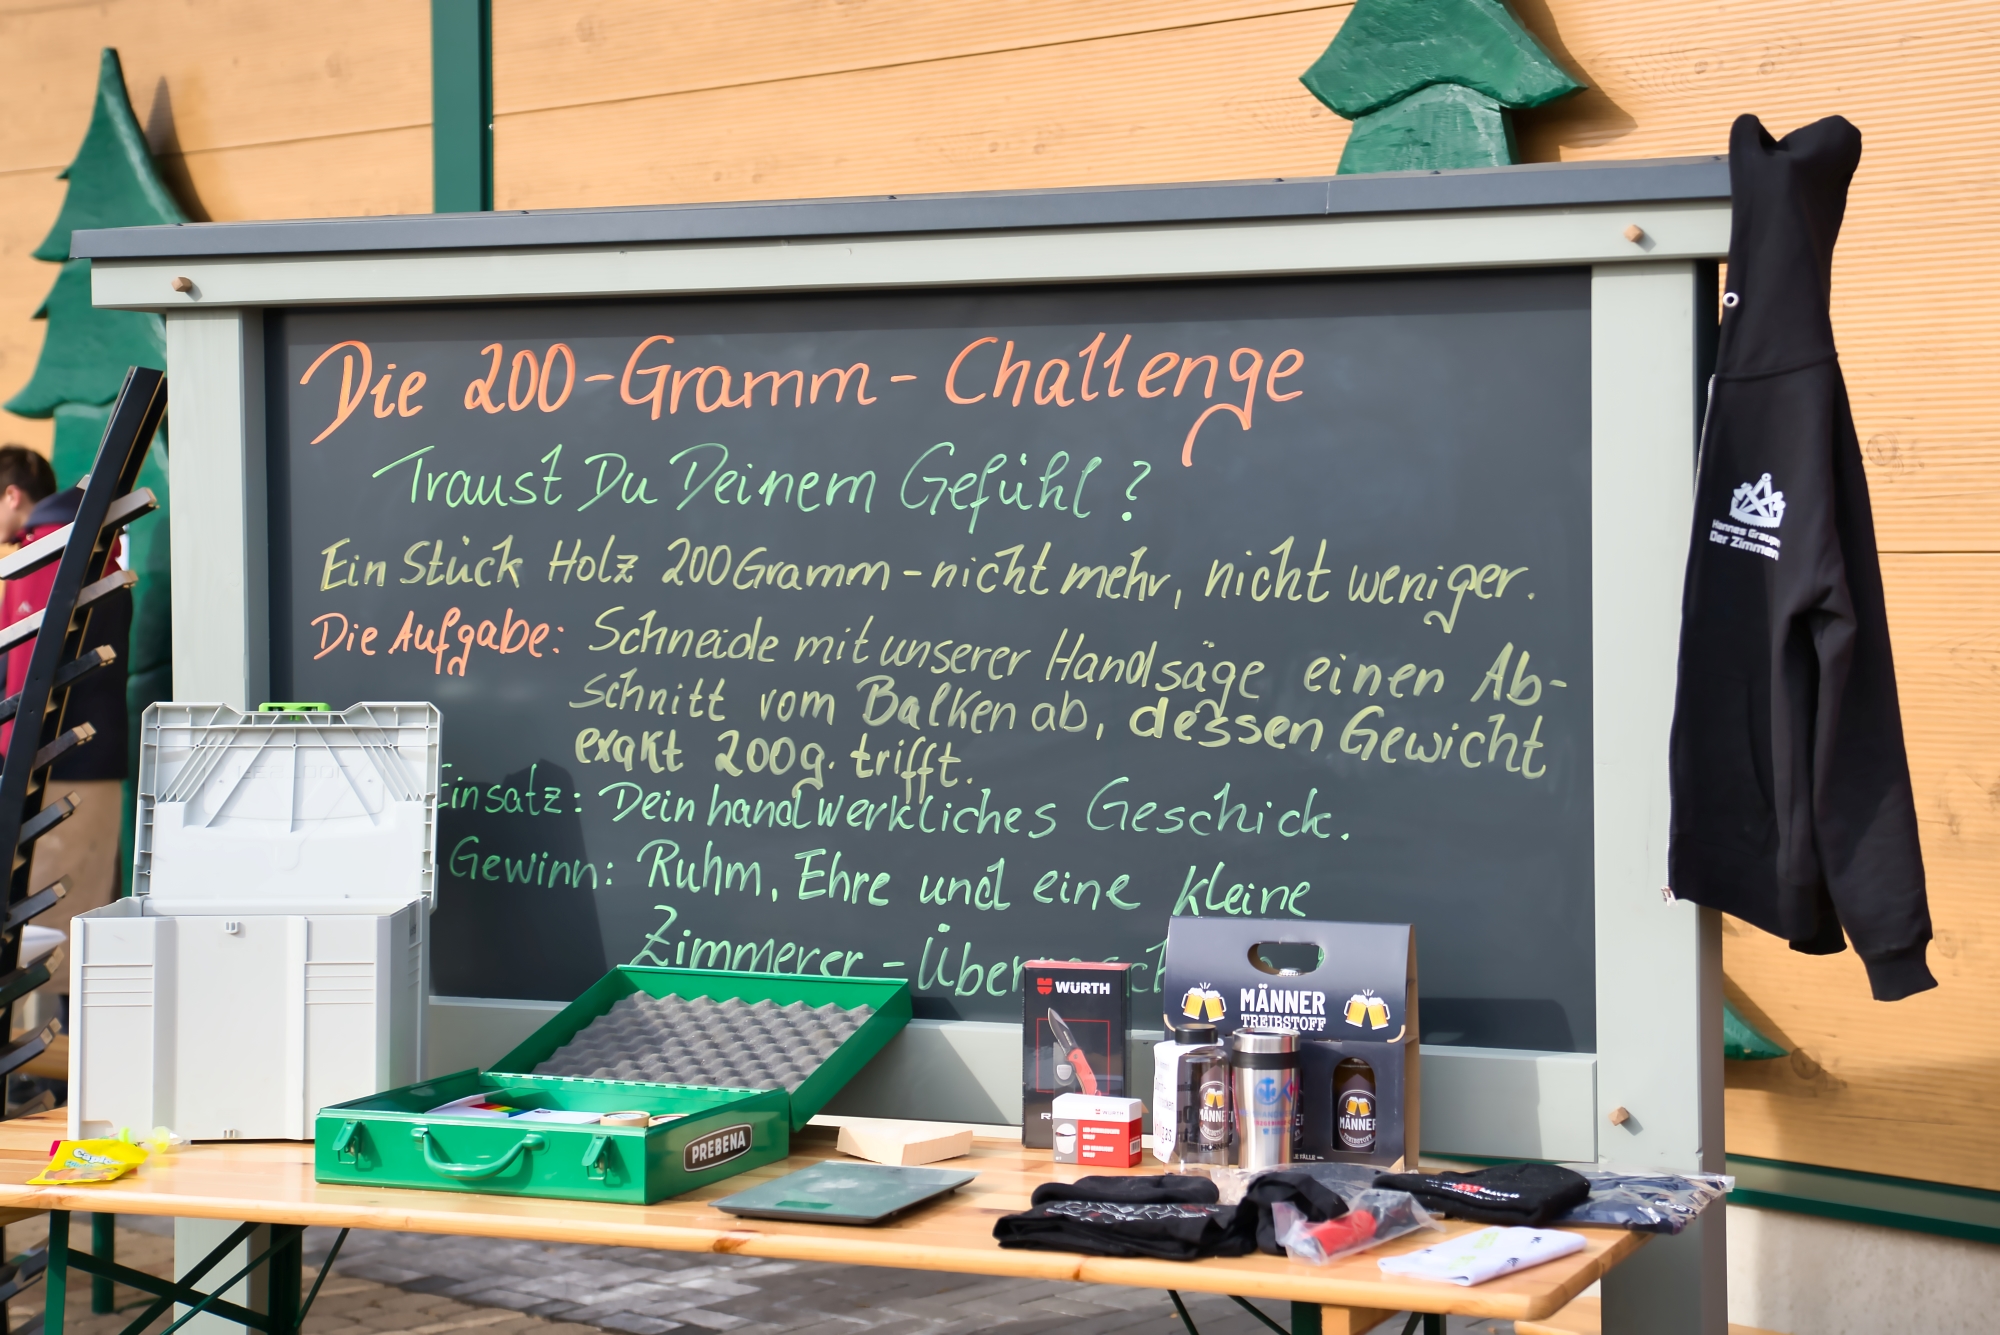 Die 200-Gramm-Challenge
Traust Du Deinem Gefühl?
Ein Stück Holz 200 Gramm - nicht mehr, nicht weniger.
Die Aufgabe: Schneide mit unserer Handsäge einen Ab-
schnitt vom Balken ab, dessen Gewicht
exakt 200g. trifft.
Einsatz: Dein handwerkliches Geschick.
Gewinn: Ruhm, Ehre und eine kleine
Zimmerer-
Hannes
Der Zimmer
WÜRTH
MÄNNER
TREIBSTOFF
PREBENA
WÜRTH
MÄNNER
MÄNNER
TREIBSTOFF